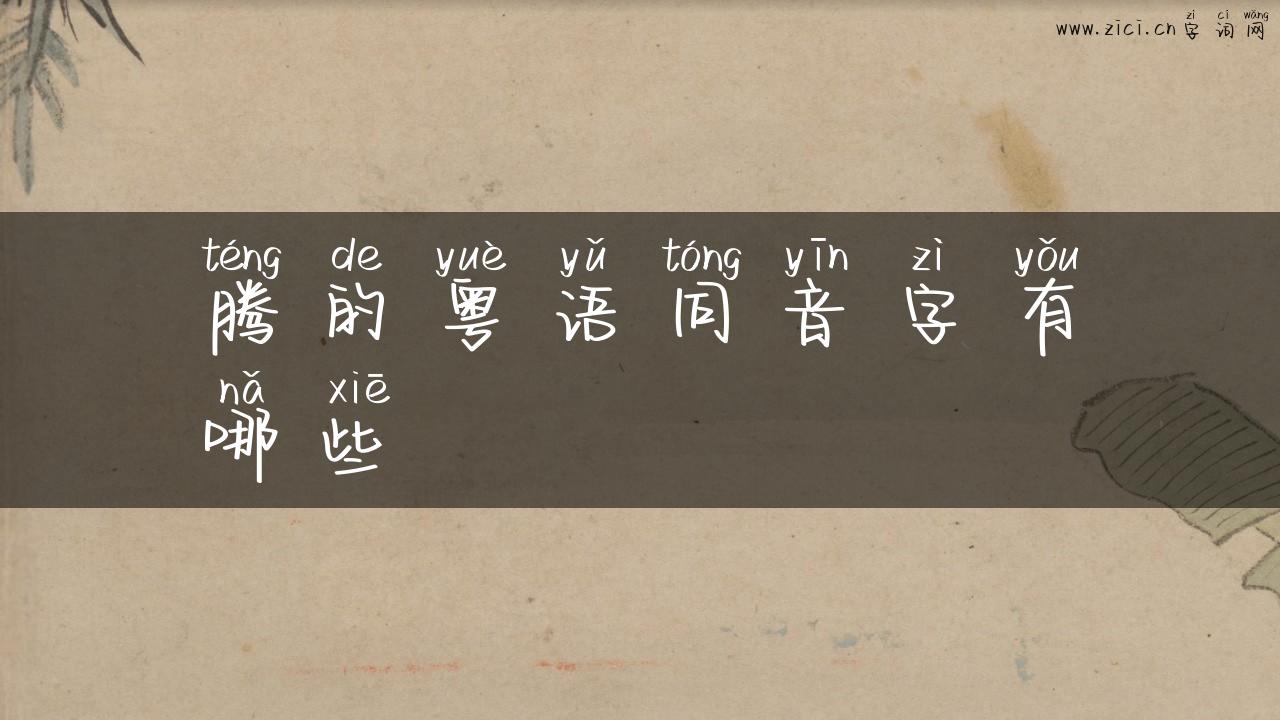 zì cí wǎng
www.zici.cn 字 词 网
téng de yuè yǔ tóng yīn zì yǒu
腾 的 粤 语 同 音 字 有
nǎ xiē
哪 些